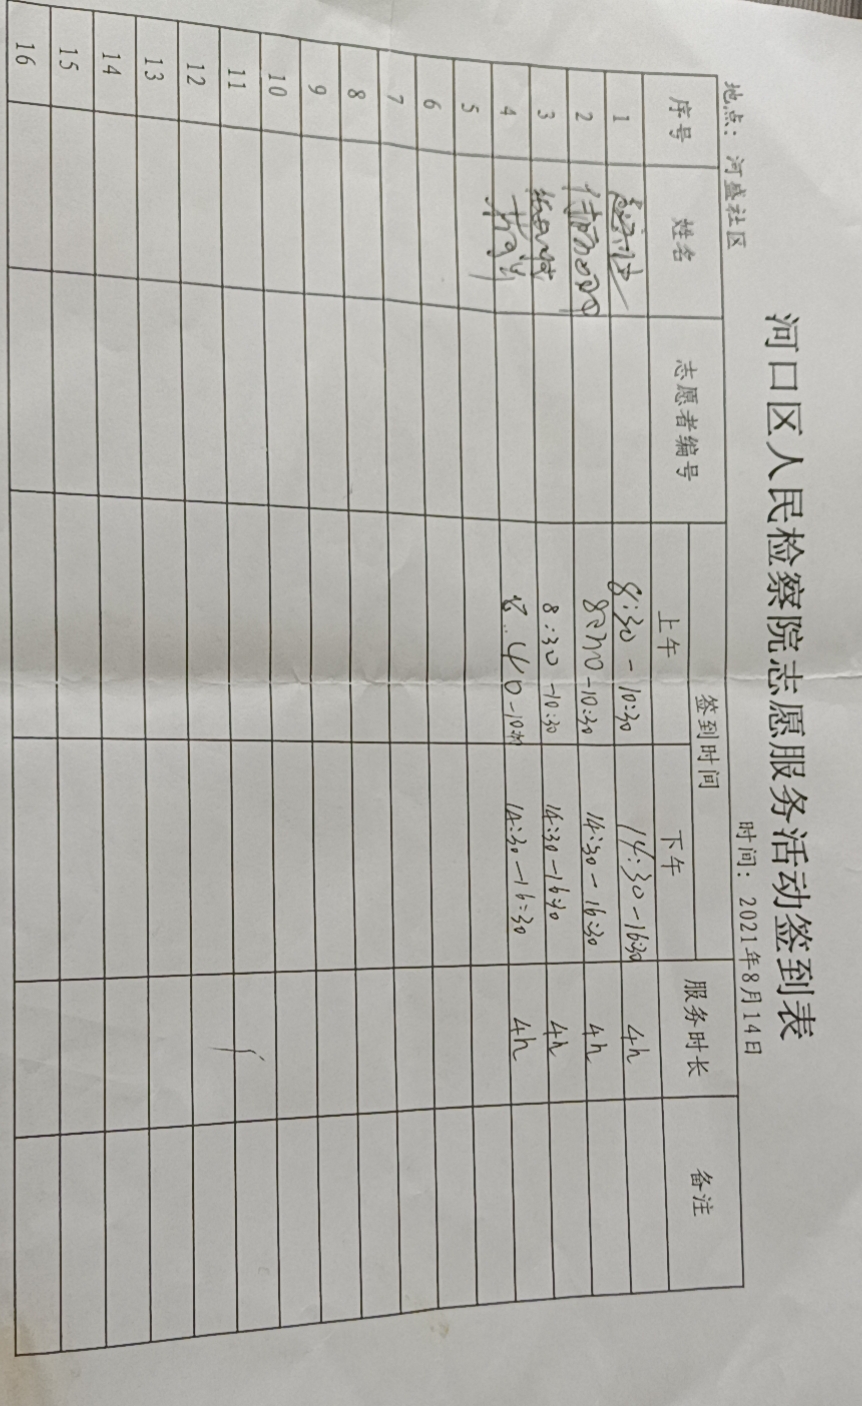 河口区人民检察院志愿服务活动签到表
地点：河盛社区 时间：2021年8月14日
序号 姓名 志愿者编号 签到时间 服务时长 备注
上午 下午
1 8:30-10:30 14:30-16:30 4h
2 8:30-10:30 14:30-16:30 4h
3 8:30-10:30 14:30-16:30 4h
4 14:30-16:30 4h
5
6
7
8
9
10
11
12
13
14
15
16